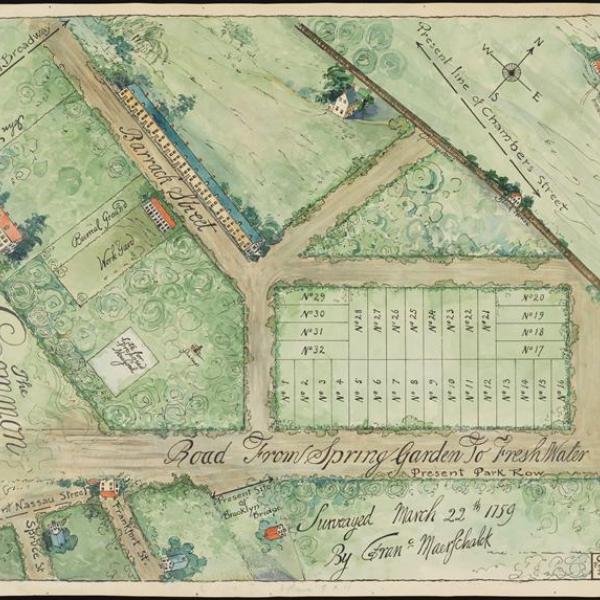 Broadway
Present line of Chambers Street
N
W
E
S
Barrack Street
Burrial Ground
Work Yard
The Common
Nº 29
Nº 30
Nº 31
Nº 32
Nº 28
Nº 27
Nº 26
Nº 25
Nº 24
Nº 23
Nº 22
Nº 21
Nº 20
Nº 19
Nº 18
Nº 17
Nº 1
Nº 2
Nº 3
Nº 4
Nº 5
Nº 6
Nº 7
Nº 8
Nº 9
Nº 10
Nº 11
Nº 12
Nº 13
Nº 14
Nº 15
Nº 16
Road From Spring Garden To Fresh Water
Present Park Row
Nassau Street
Spruce St
Frankfort St
Present Site
of
Brooklyn
Bridge
Survayed March 22th 1759
By Franc Maerschalk